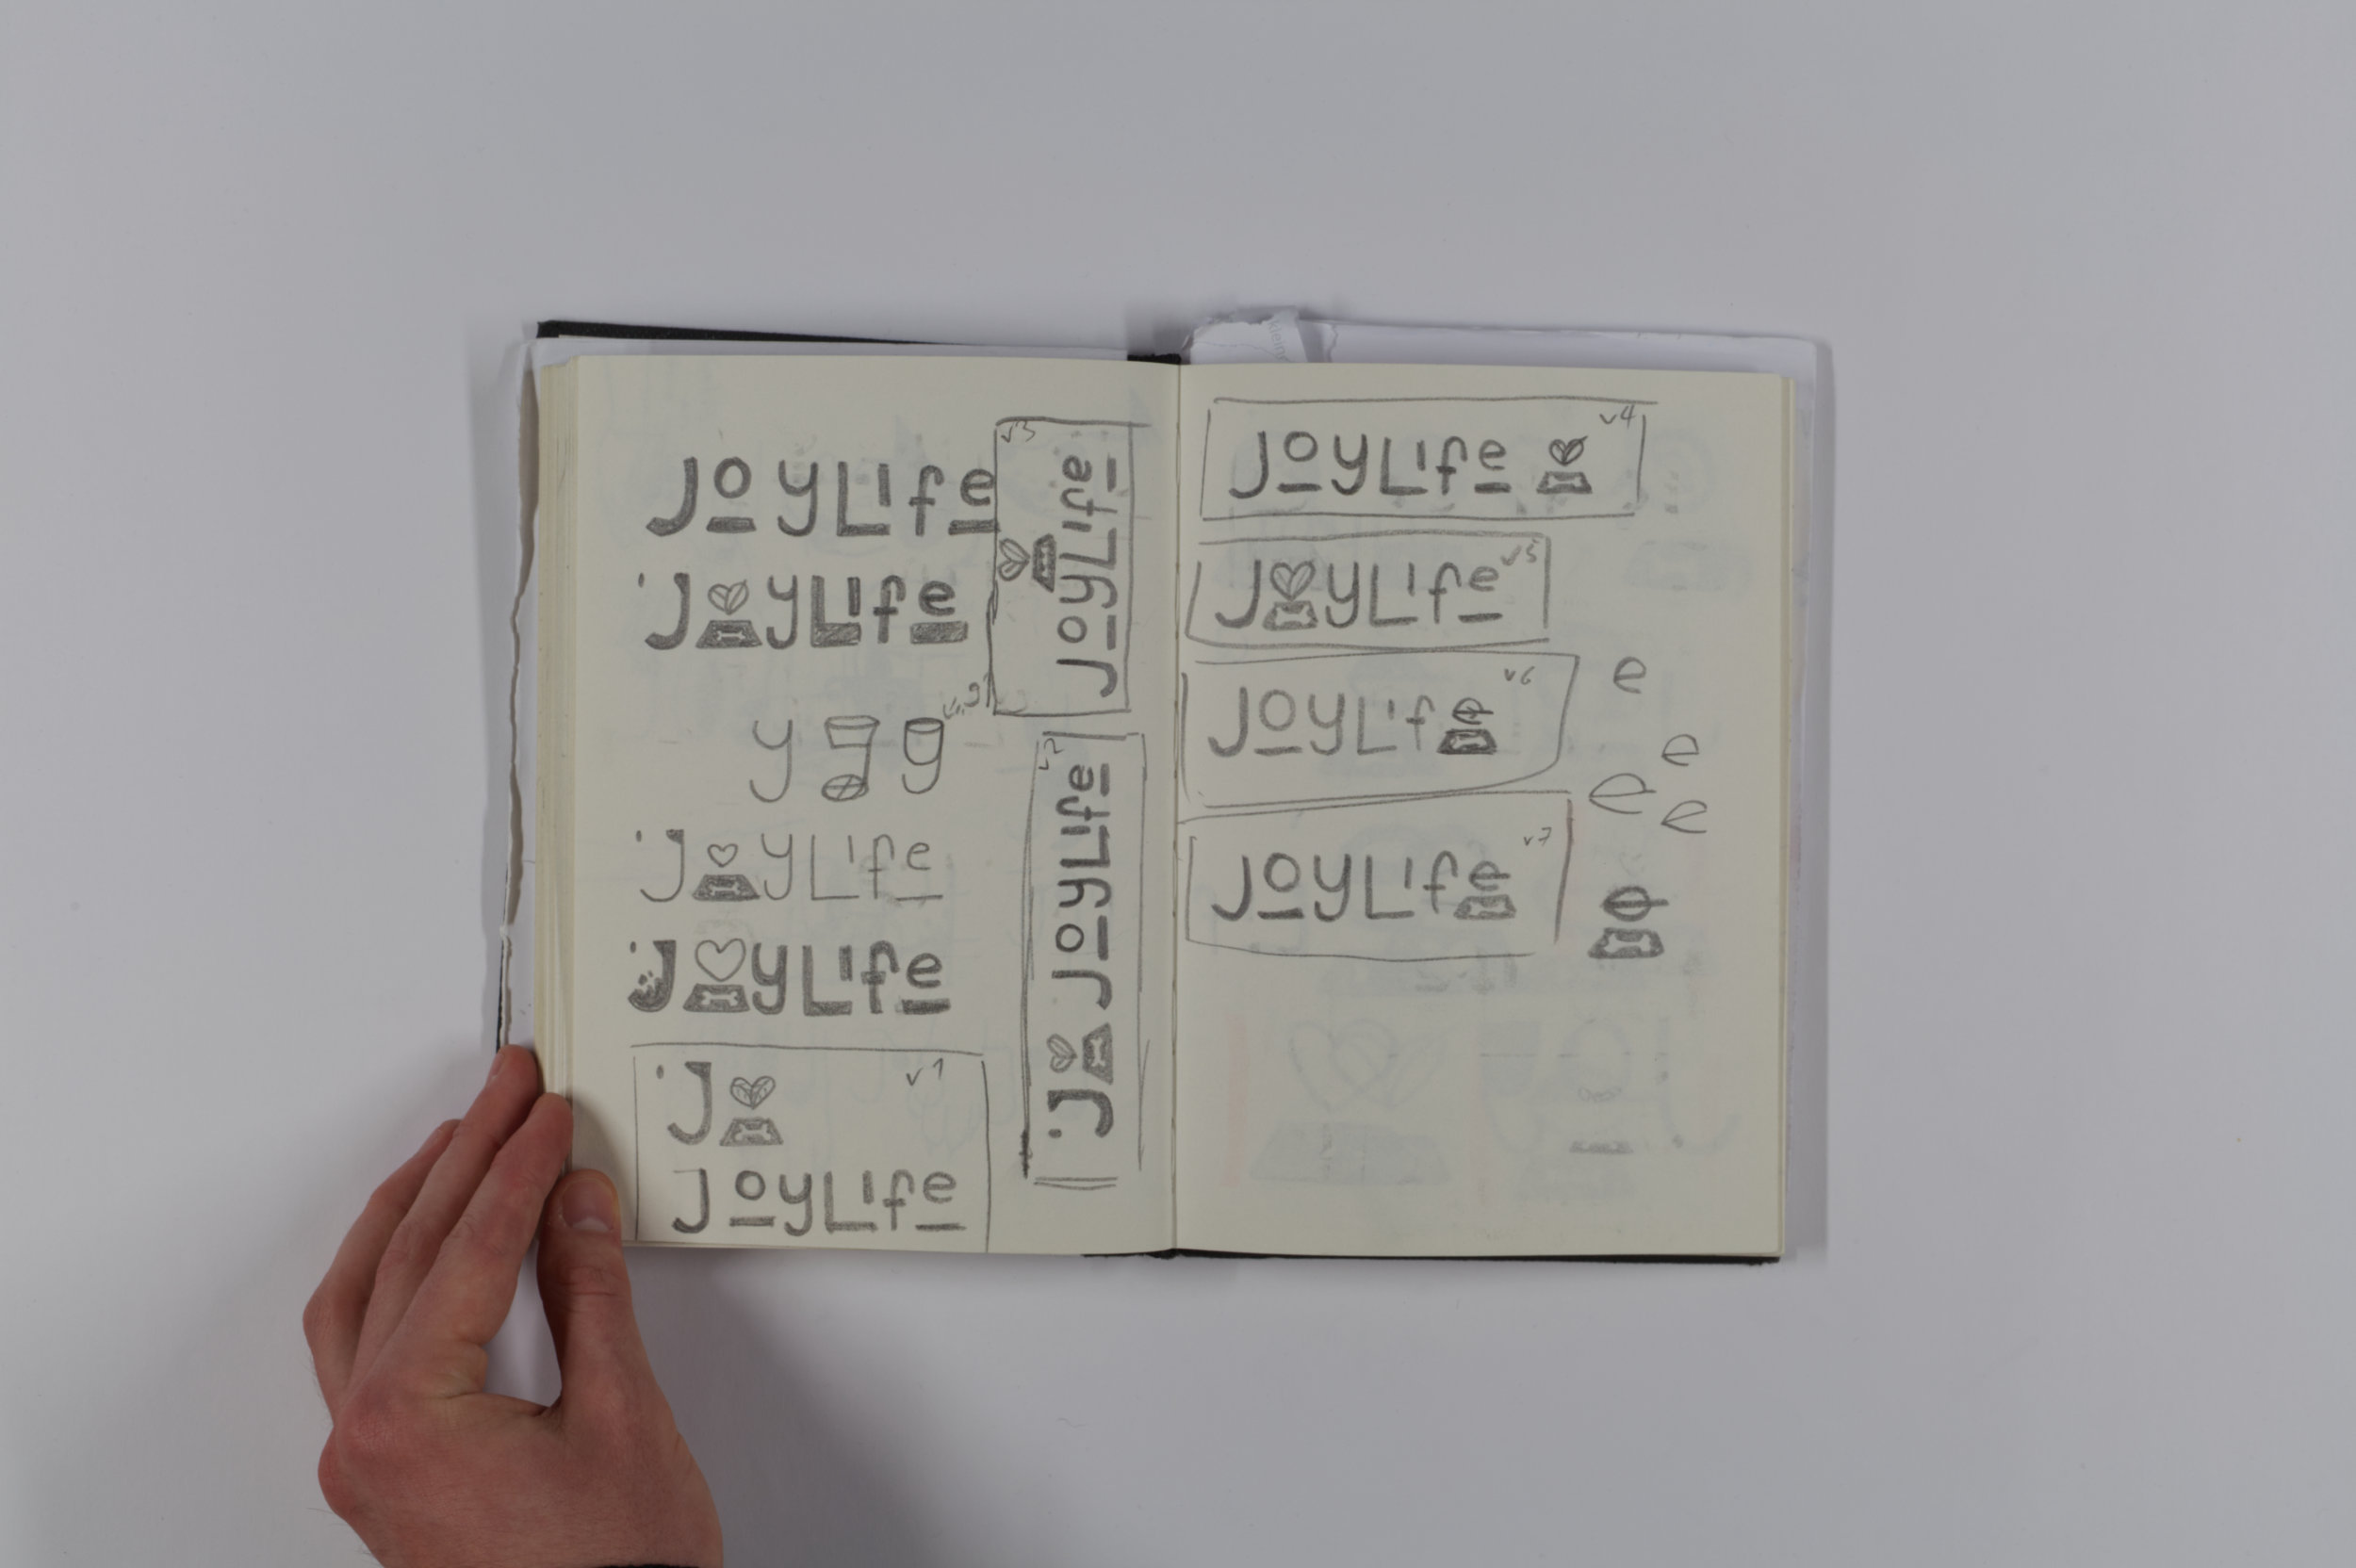 JoyLife
JoyLife
y g g
JoyLife
JoyLife
v1
J
JoyLife
v3
JoyLife
v2
J JoyLife
v4
JoyLife
v5
JoyLife
v6
JoyLife
v7
JoyLife
e
e
e e